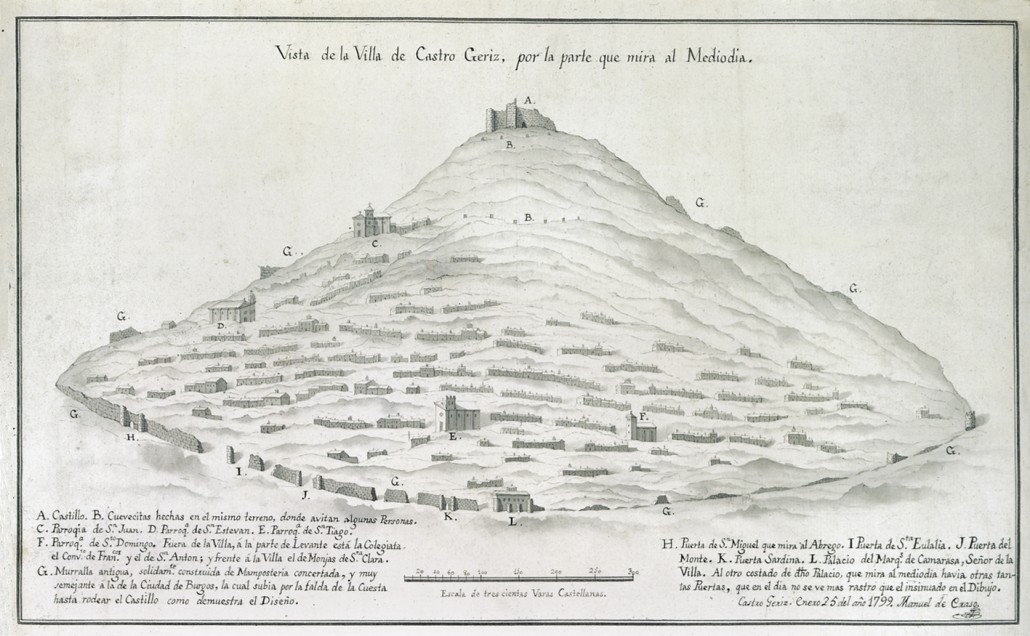 Vista de la Villa de Castro Geriz, por la parte que mira al Mediodia.
A.
B.
G.
B.
C.
G.
G.
D.
G.
G.
H.
F.
E.
G.
I.
J.
G.
K.
L.
G.
A. Castillo. B. Cuevecitas hechas en el mismo terreno, donde avitan algunas Personas.
C. Parroqia de Sn. Juan. D. Parroqa. de Sn. Estevan. E. Parroqa. de Sn. Tiago.
F. Parroqa. de Sto. Domingo. Fuera de la Villa, á la parte de Levante está la Colegiata
el Convto. de Franos. y el de Sn. Anton; y frente á la Villa el de Monjas de Sta. Clara.
G. Murralla antigua, solidamte. construida de Mamposteria concertada, y muy
semejante á la de la Ciudad de Burgos, la cual subia por la falda de la Cuesta
hasta rodear el Castillo como demuestra el Diseño.
20 40 60 80 100 150 200 250 300
Escala de trescientas Varas Castellanas.
H. Puerta de Sn. Miguel que mira al Abrego. I Puerta de Sta. Eulalia. J. Puerta del
Monte. K. Puerta Sardina. L. Palacio del Marqs. de Camarasa, Señor de la
Villa. Al otro costado de dho Palacio, que mira al mediodia havia otras tan-
tas Puertas, que en el dia no se ve mas rastro que el insinuado en el Dibujo.
Castro Geriz. Enero 25 del año 1799. Manuel de